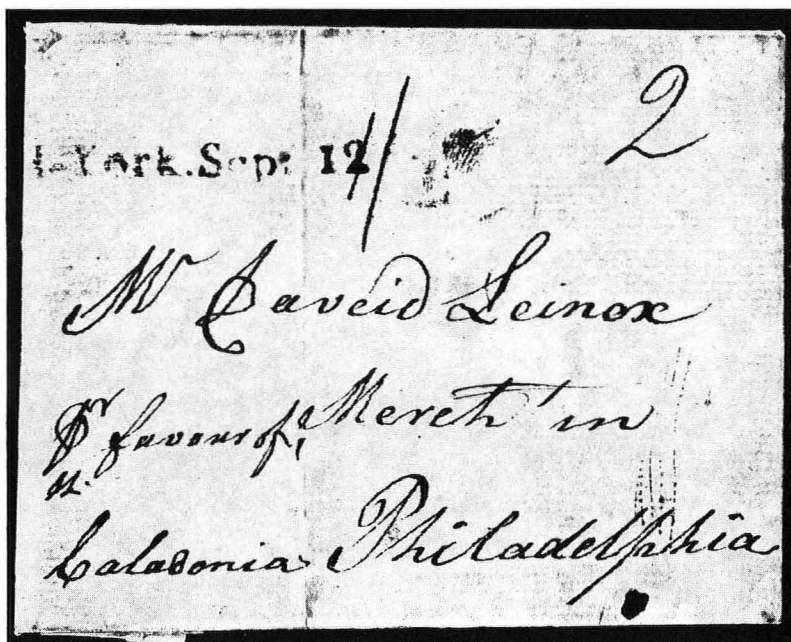 2
York.Sept 12
Mr Daveid Leinox
Pr favour of Merch' in
Caladonia Philadelphia